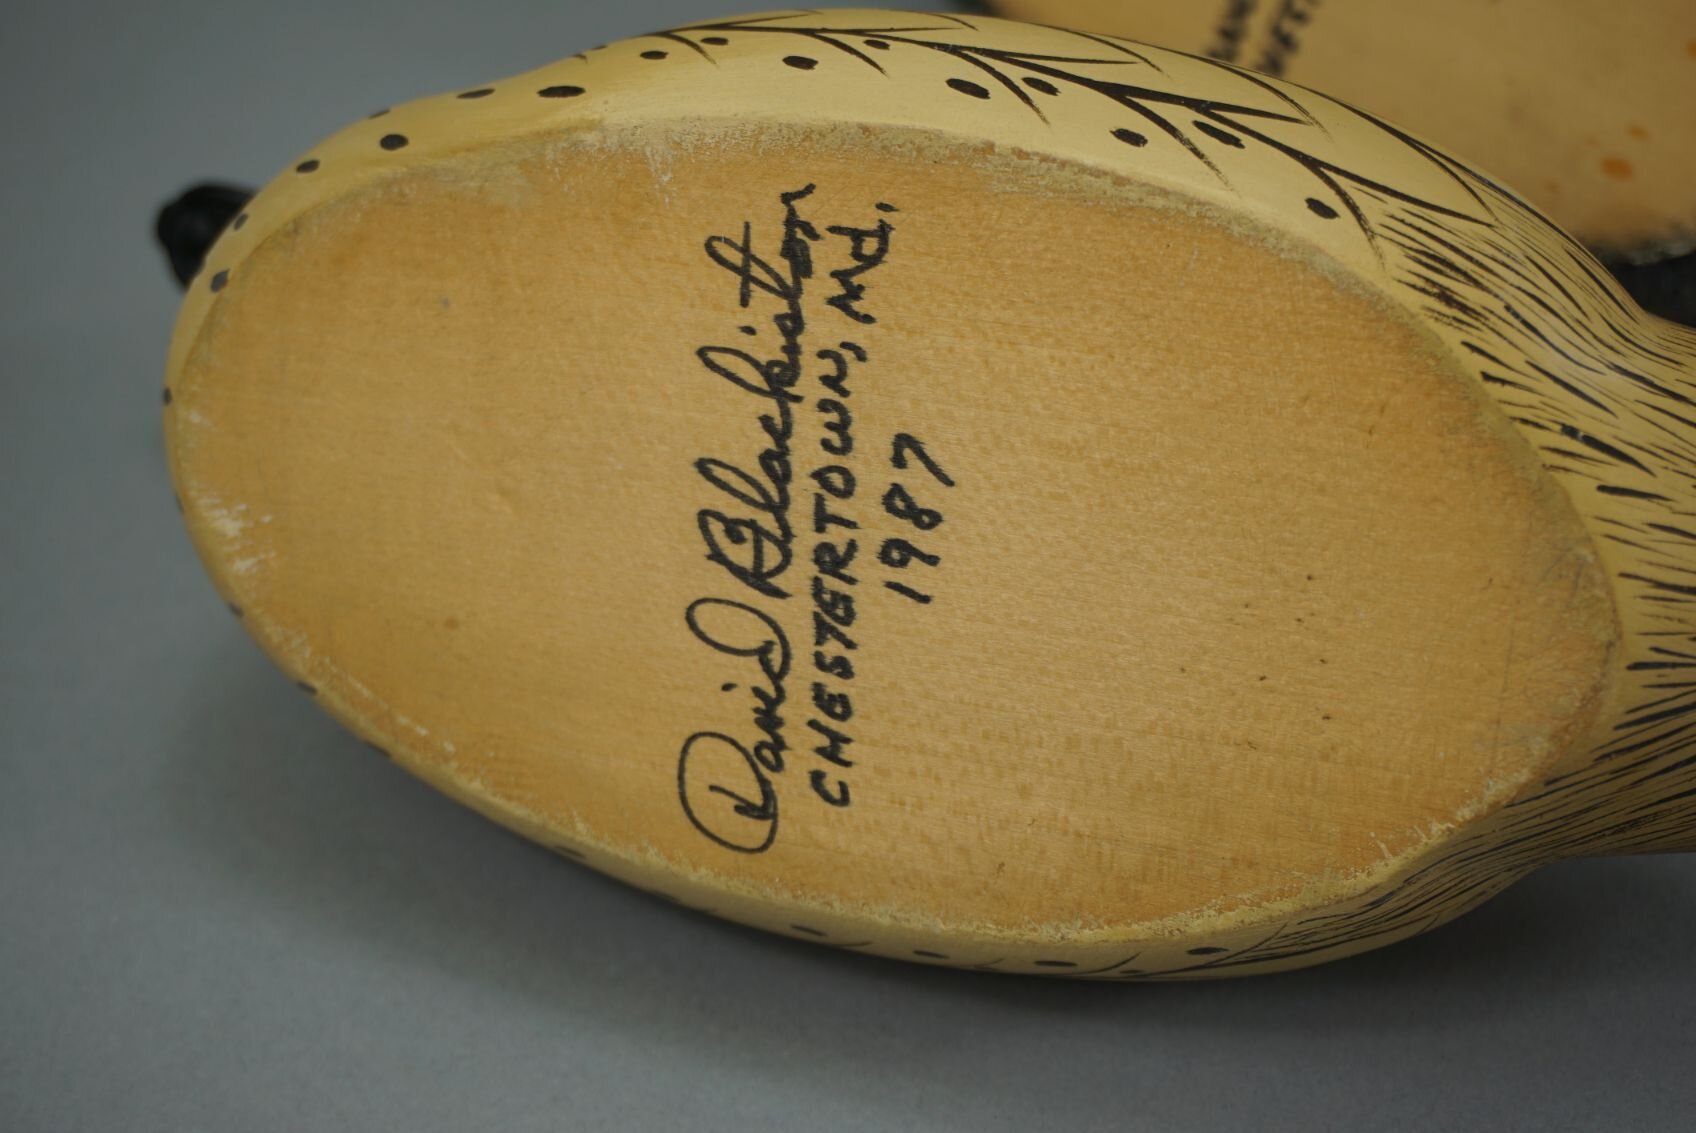 David Blackiston
CHESTERTOWN, Md.
1987